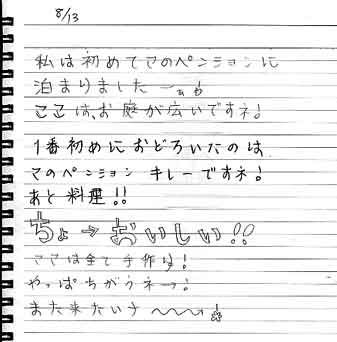 8/13
私は初めてこのペンションに
泊まりました
ここは、お庭が広いですネ!
1番初めにおどろいたのは
このペンション キレーですネ!
あと料理!!
ちょ→おいしい!!
ここは全て手作り!
やっぱちがうネーっ!
また来たいナ 〜〜〜